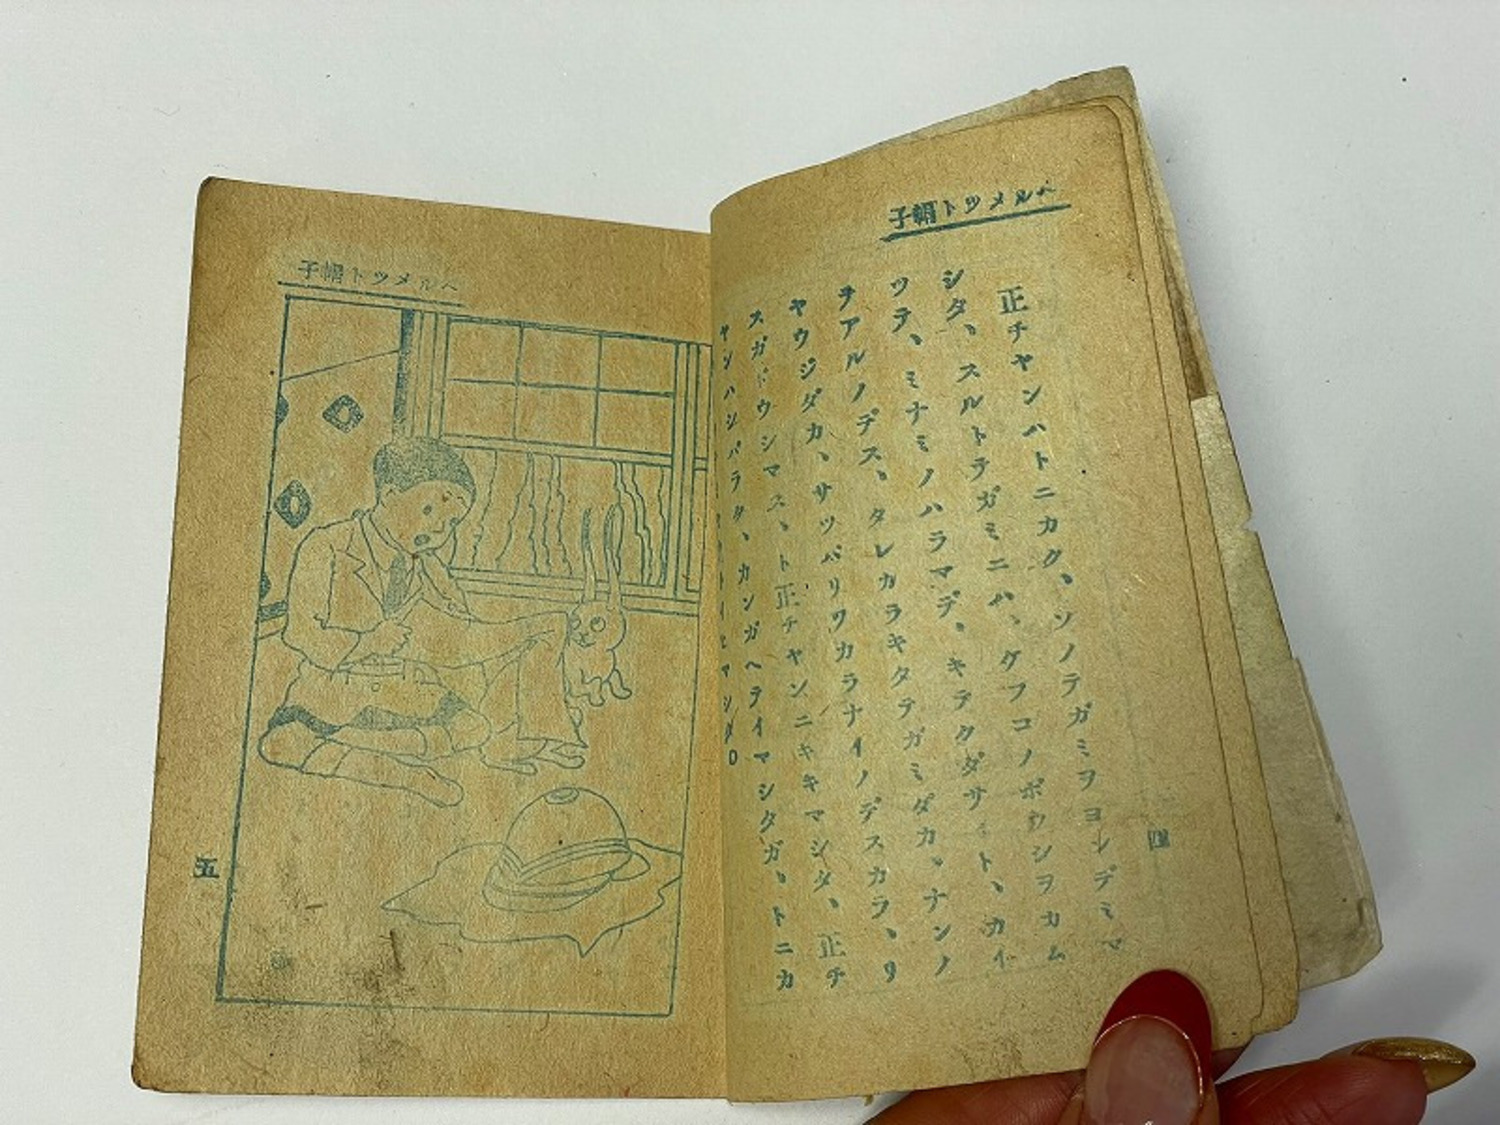 ヘルメツト帽子
正チヤンハトニカク、ソノテガミヲヨンデミマ
シタ、スルトテガミニハ、ケフコノボウシヲカム
ツテ、ミナミノハラマデ、キテクダサイト、カイ
テアルノデス、タレカラキタテガミダカ、ナンノ
ヤウジダカ、サツパリワカラナイノデスカラ、リ
スガドウシマス、ト正チヤンニキキマシタ、正チ
ヤンハシバラク、カンガヘテイマシタガ、トニカ
トイヒマシタ。
四
ヘルメツト帽子
五